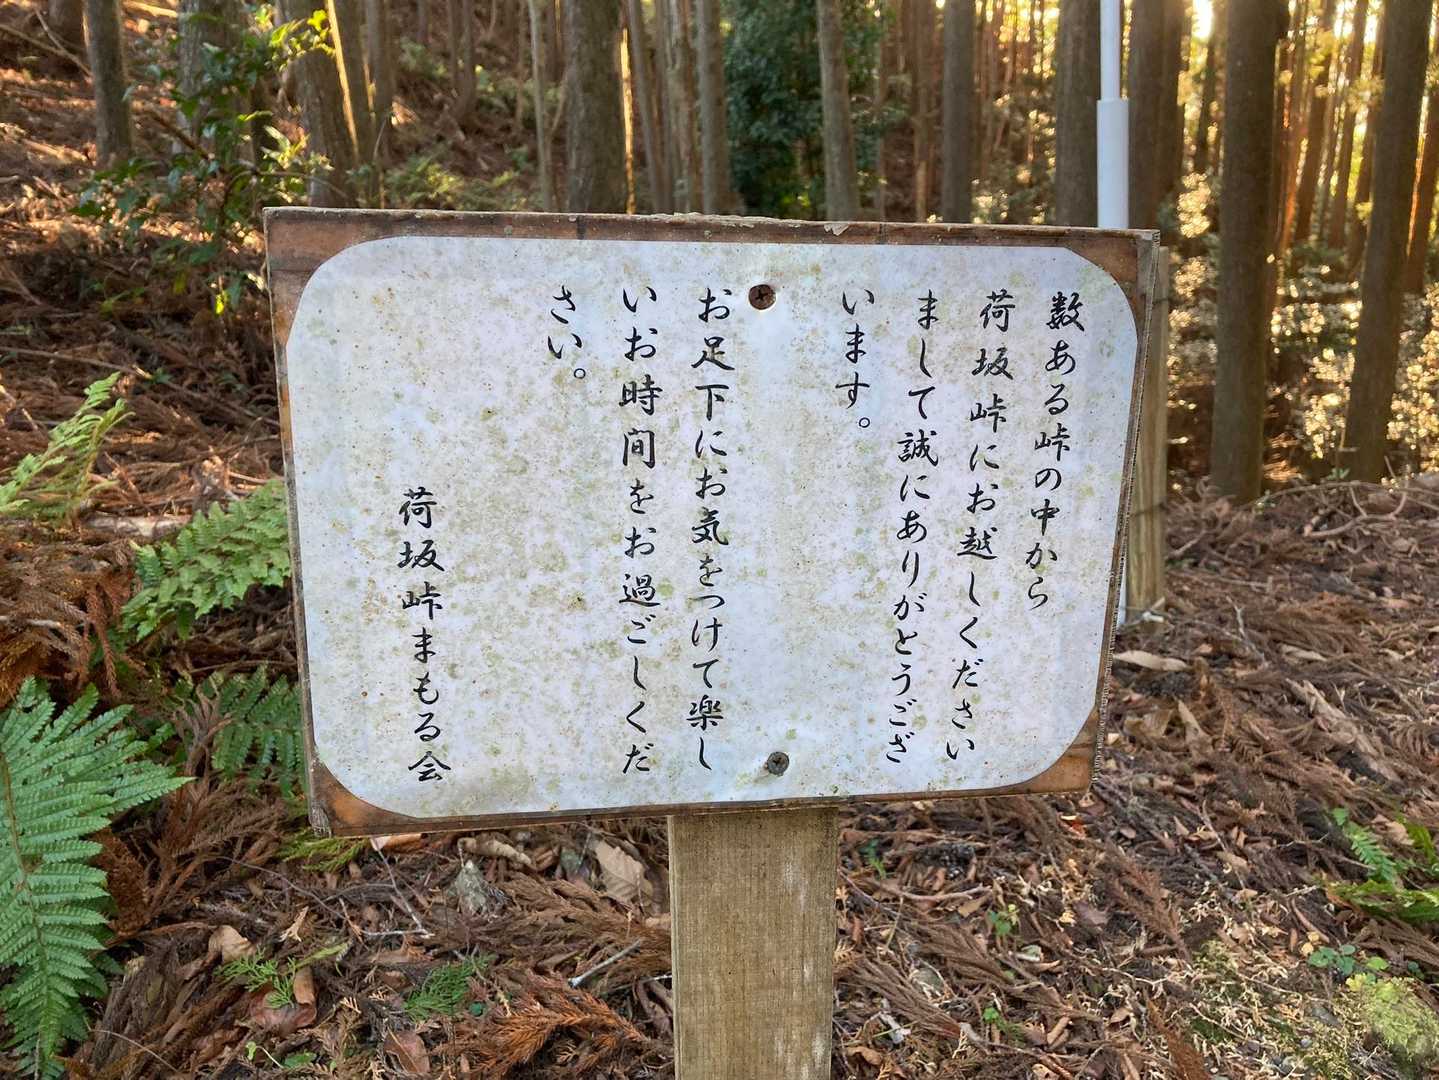 数ある峠の中から
荷坂峠にお越しください
まして誠にありがとうござ
います。
お足下にお気をつけて楽し
いお時間をお過ごしくだ
さい。
荷坂峠まもる会